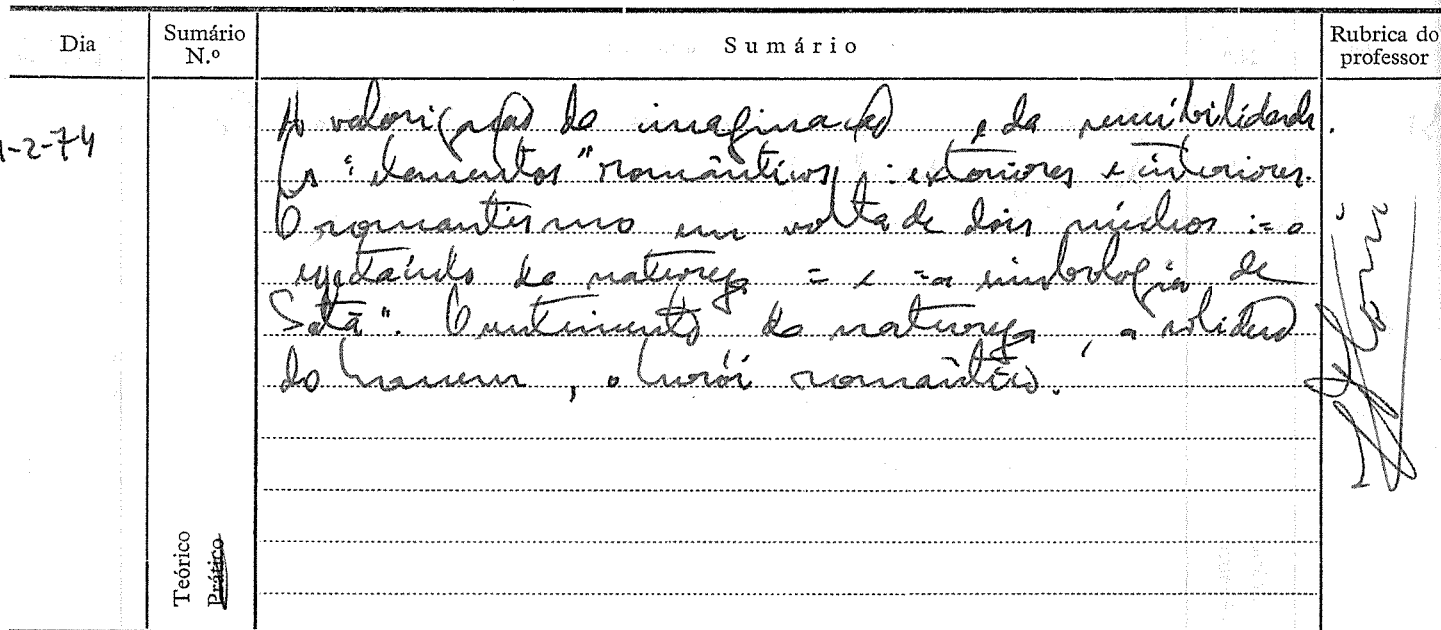 Dia
Sumário N.º
Sumário
Rubrica do professor
-2-74
A valorização da imaginação e da sensibilidade.
Os "elementos" românticos: exteriores e interiores.
O romantismo em volta de dois núcleos: = o
espetáculo da natureza = e = a simbologia de
Satã". O sentimento da natureza, a solidão
do homem, o herói romântico.
Teórico
Prático